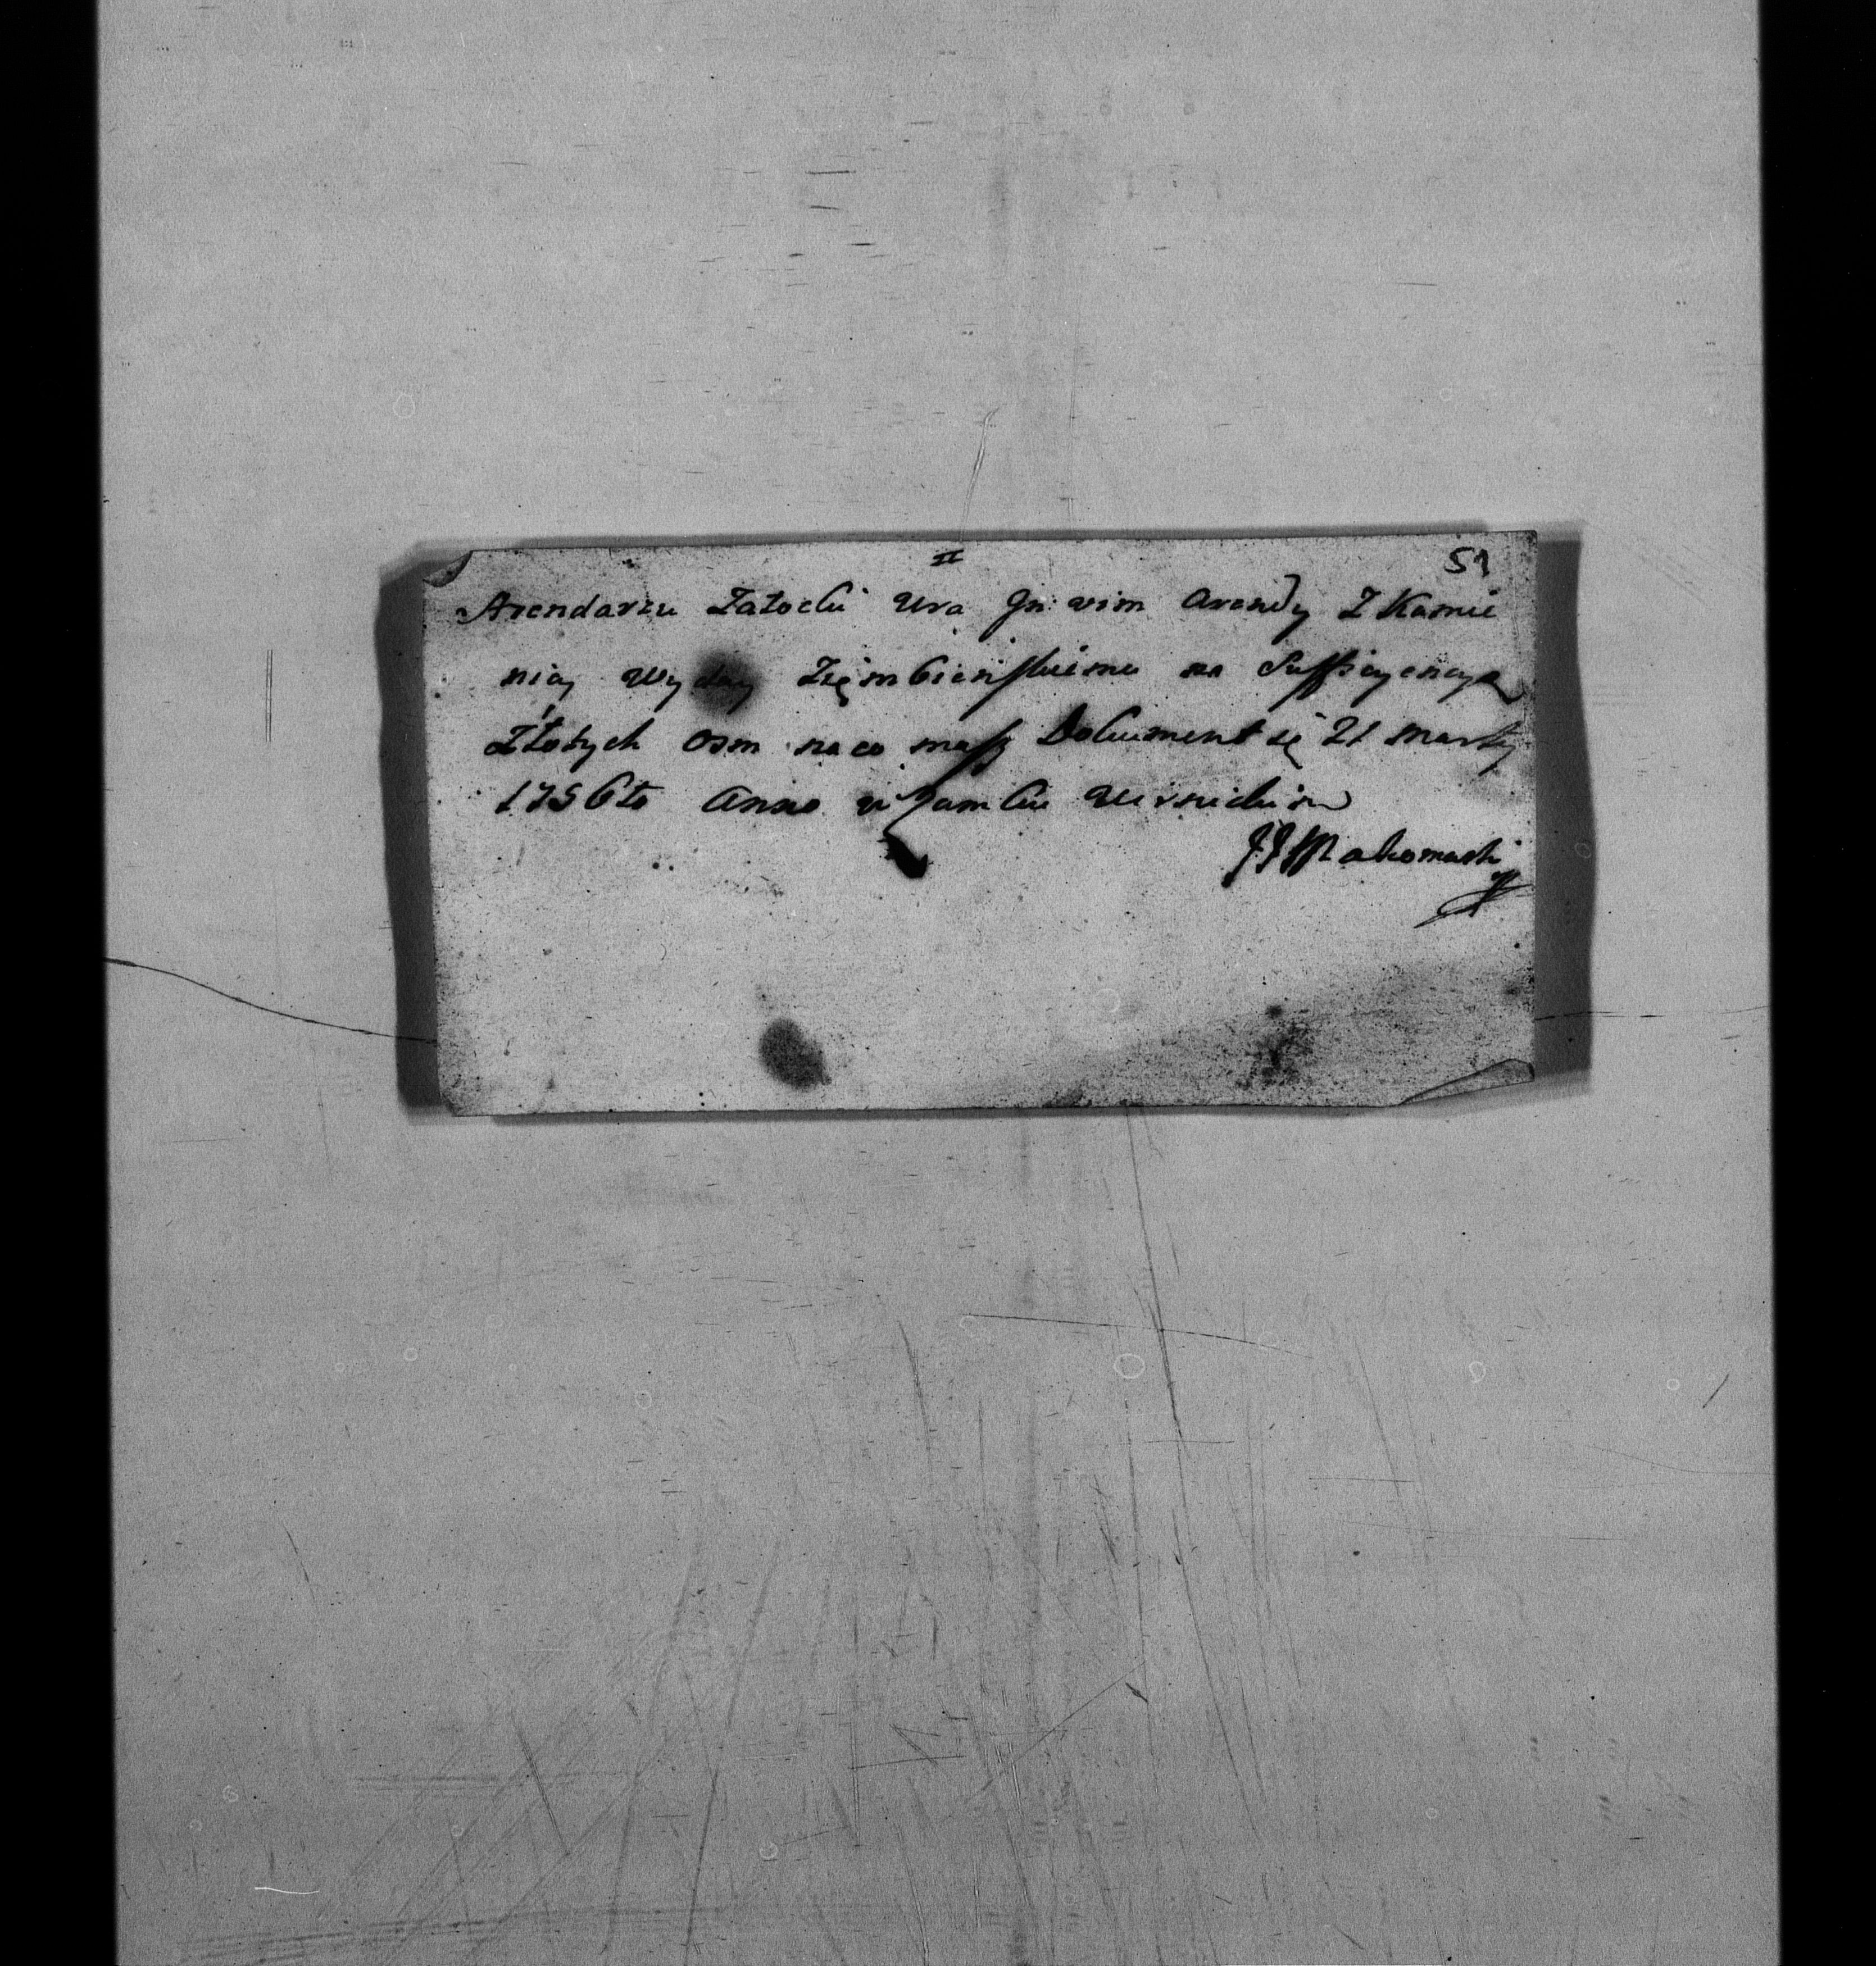 II
51
Arendarzu Załocki Ura Jn vim Arendy Z Kamie
nicy wyday Zięmbieńskiemu na Suffizyencyą
Złotych osm na co masz Dokument się 21 marty
1756to Anno w Zamku
JJMakomaski